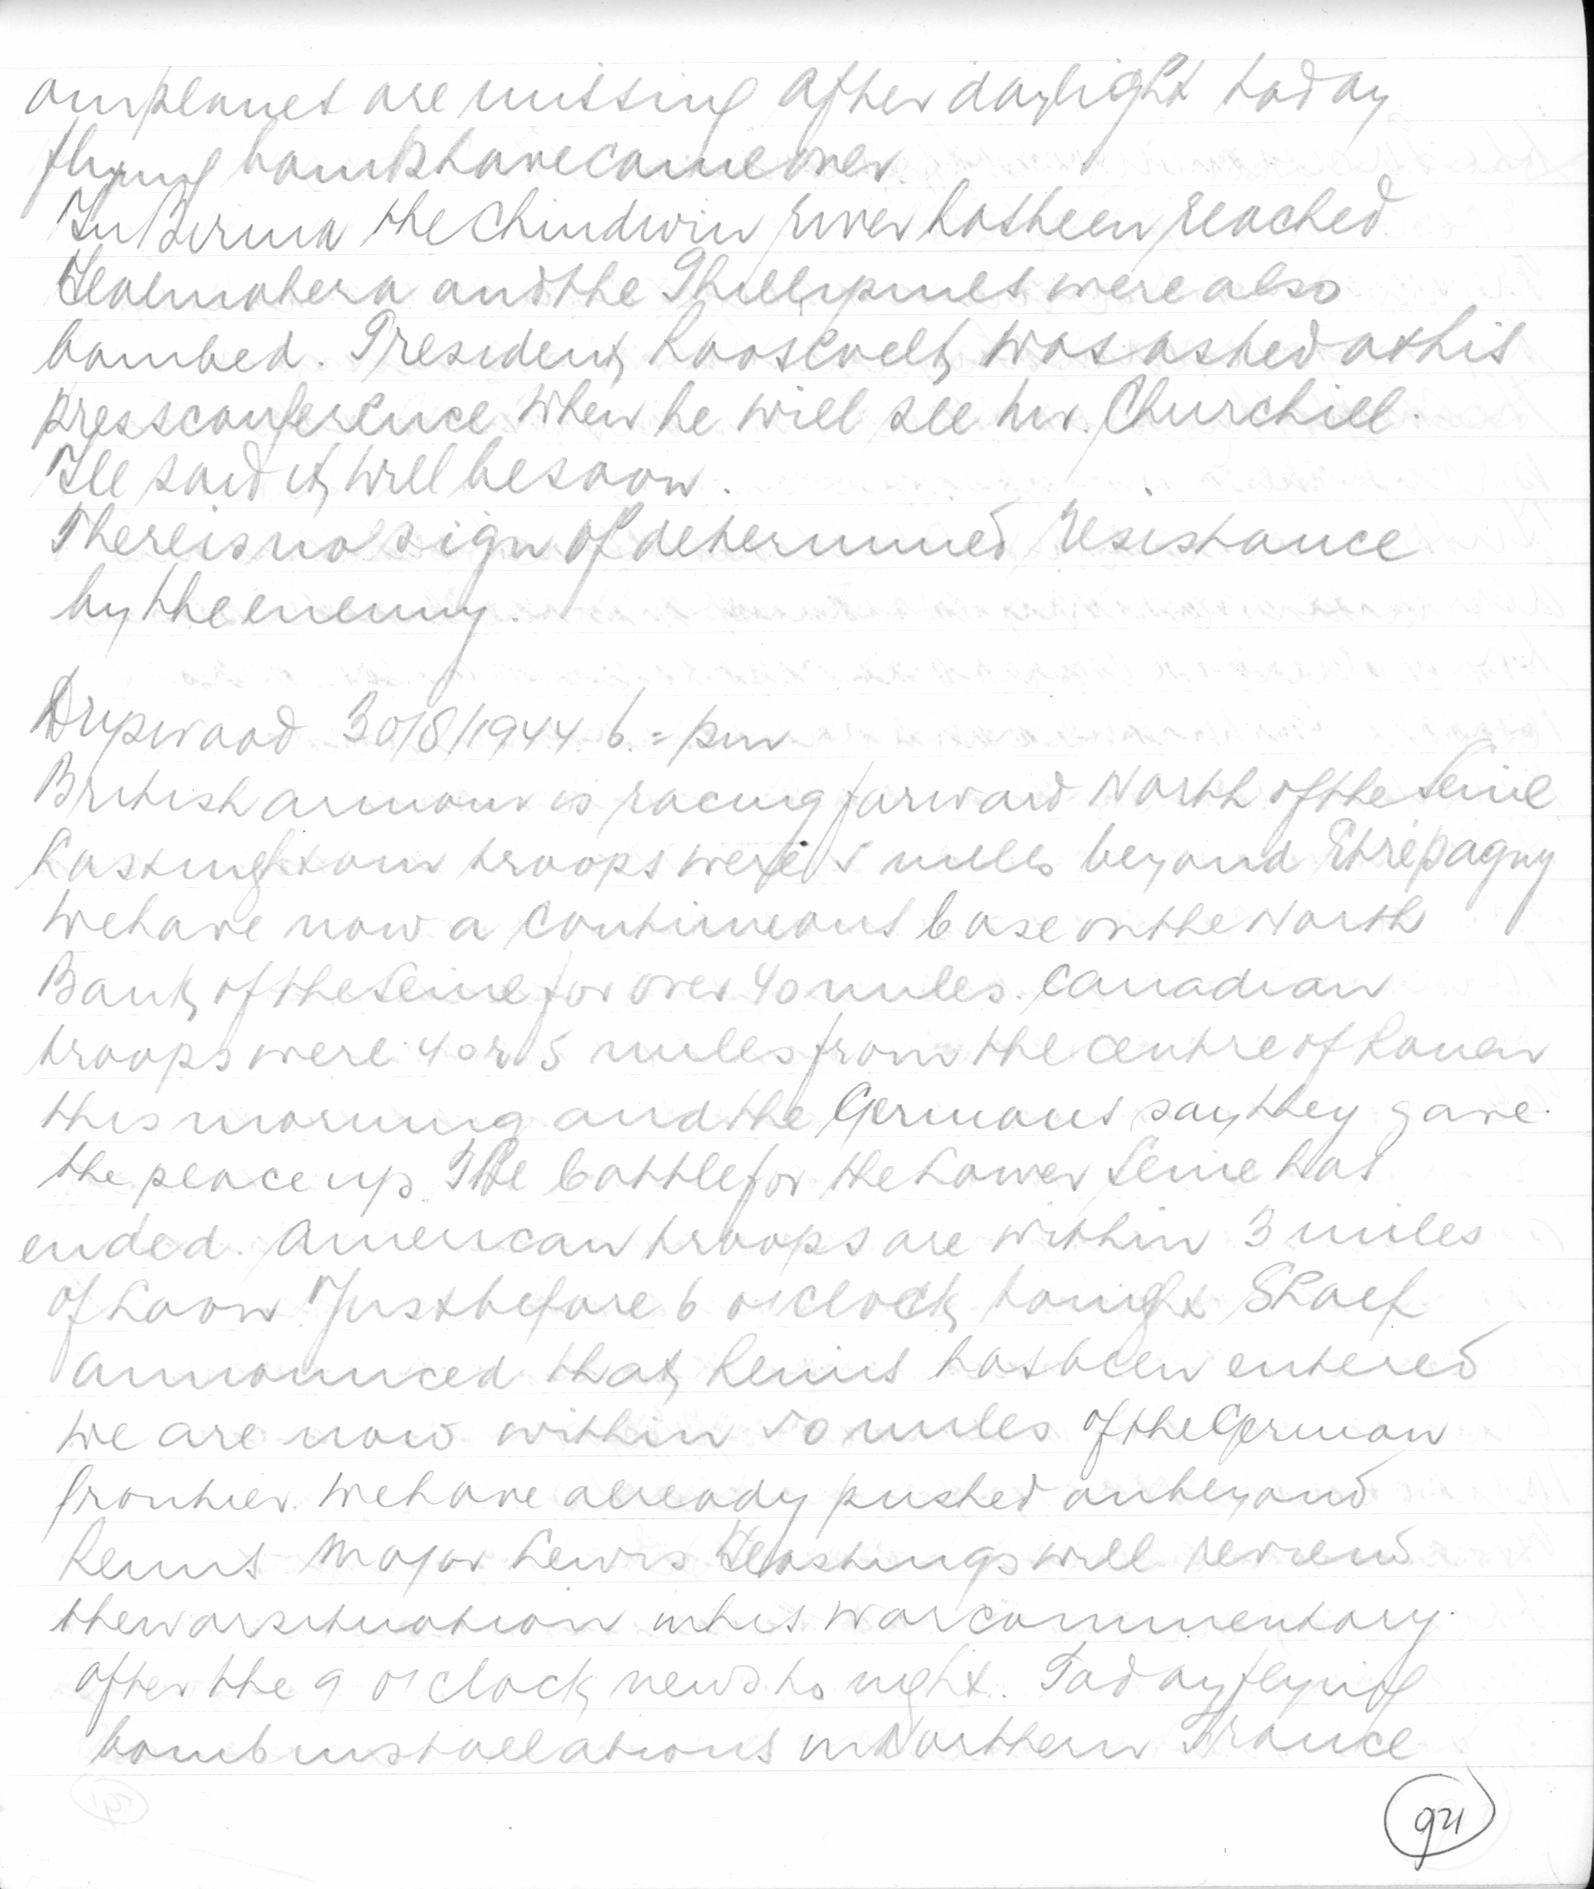 our planes are missing After daylight today
flying bombs have come over.
In Birma the Chindwin river has been reached
Halmahera and the Phillipines were also
bombed. President Roosevelt was asked at his
pressconference when he will see Mr. Churchill.
He said it will be soon.
There is no sign of determined resistance
by the enemy.
Drypwood 30/8/1944. 6.= pm
British armour is racing forward North of the Seine
Last night our troops were 5 miles beyond Etrépagny
We have now a continueous base on the North
Bank of the Seine for over 40 miles. Canadian
troops were 4 or 5 miles from the centre of Rouen
this morning and the Germans say they gave
the place up. The battle for the Lower Seine has
ended. American troops are within 3 miles
of Laon. Just before 6 o'clock tonight Shaef
announced that Reims has been entered
We are now within 50 miles of the German
frontier. We have already pushed on beyond
Reims Major Lewis Hastings will review
the war situation in his war commentary
after the 9 o'clock news to night. Today flying
bomb installations in Northern France